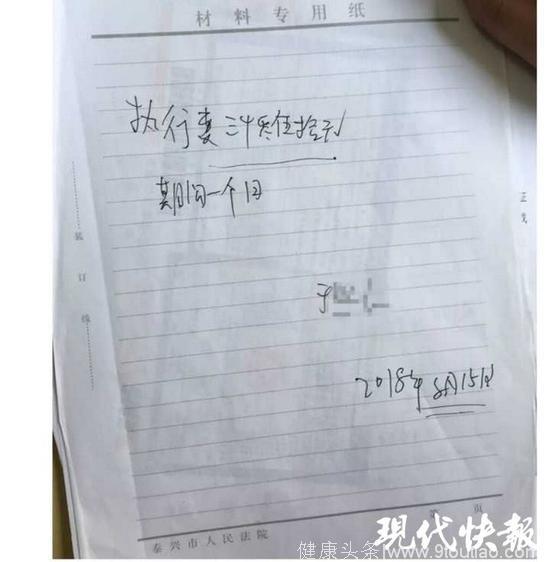 材料专用纸
执行妻
期间一个月
于
2018年8月15日
装
订
线
第 页
泰兴市人民法院
现代快報
健康头条/www.9touliao.com